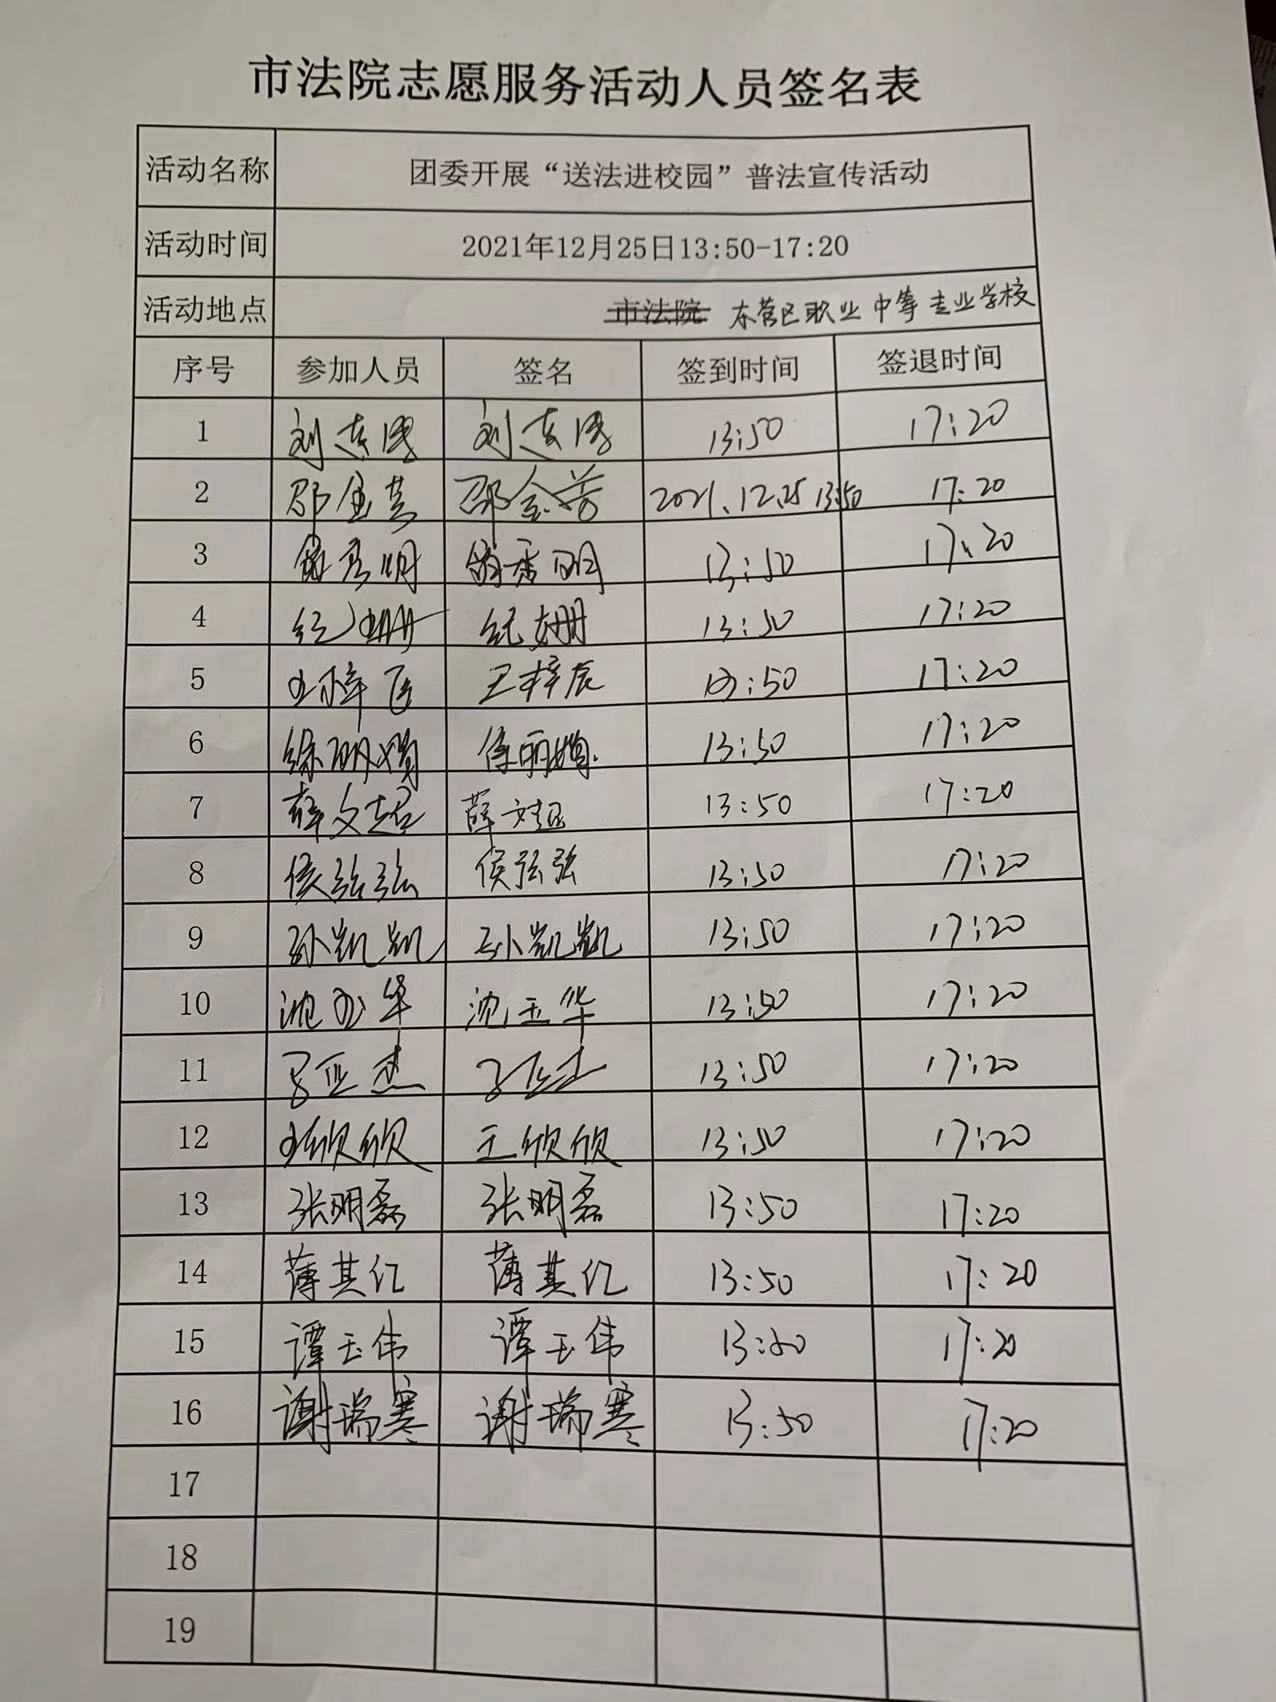 市法院志愿服务活动人员签名表
活动名称 团委开展“送法进校园”普法宣传活动
活动时间 2021年12月25日13:50-17:20
活动地点 市法院 东营区职业中等专业学校
序号 参加人员 签名 签到时间 签退时间
1 13:50 17:20
2 2021.12.25 13:50 17:20
3 13:50 17:20
4 纪姗 纪姗 13:50 17:20
5 王梓辰 王梓辰 13:50 17:20
6 13:50 17:20
7 薛文超 薛文超 13:50 17:20
8 侯弦弦 侯弦弦 13:50 17:20
9 孙凯凯 孙凯凯 13:50 17:20
10 沈玉华 沈玉华 13:50 17:20
11 13:50 17:20
12 王欣欣 王欣欣 13:50 17:20
13 张明磊 张明磊 13:50 17:20
14 薄其红 薄其红 13:50 17:20
15 谭玉伟 谭玉伟 13:50 17:20
16 谢瑞寒 谢瑞寒 13:50 17:20
17
18
19